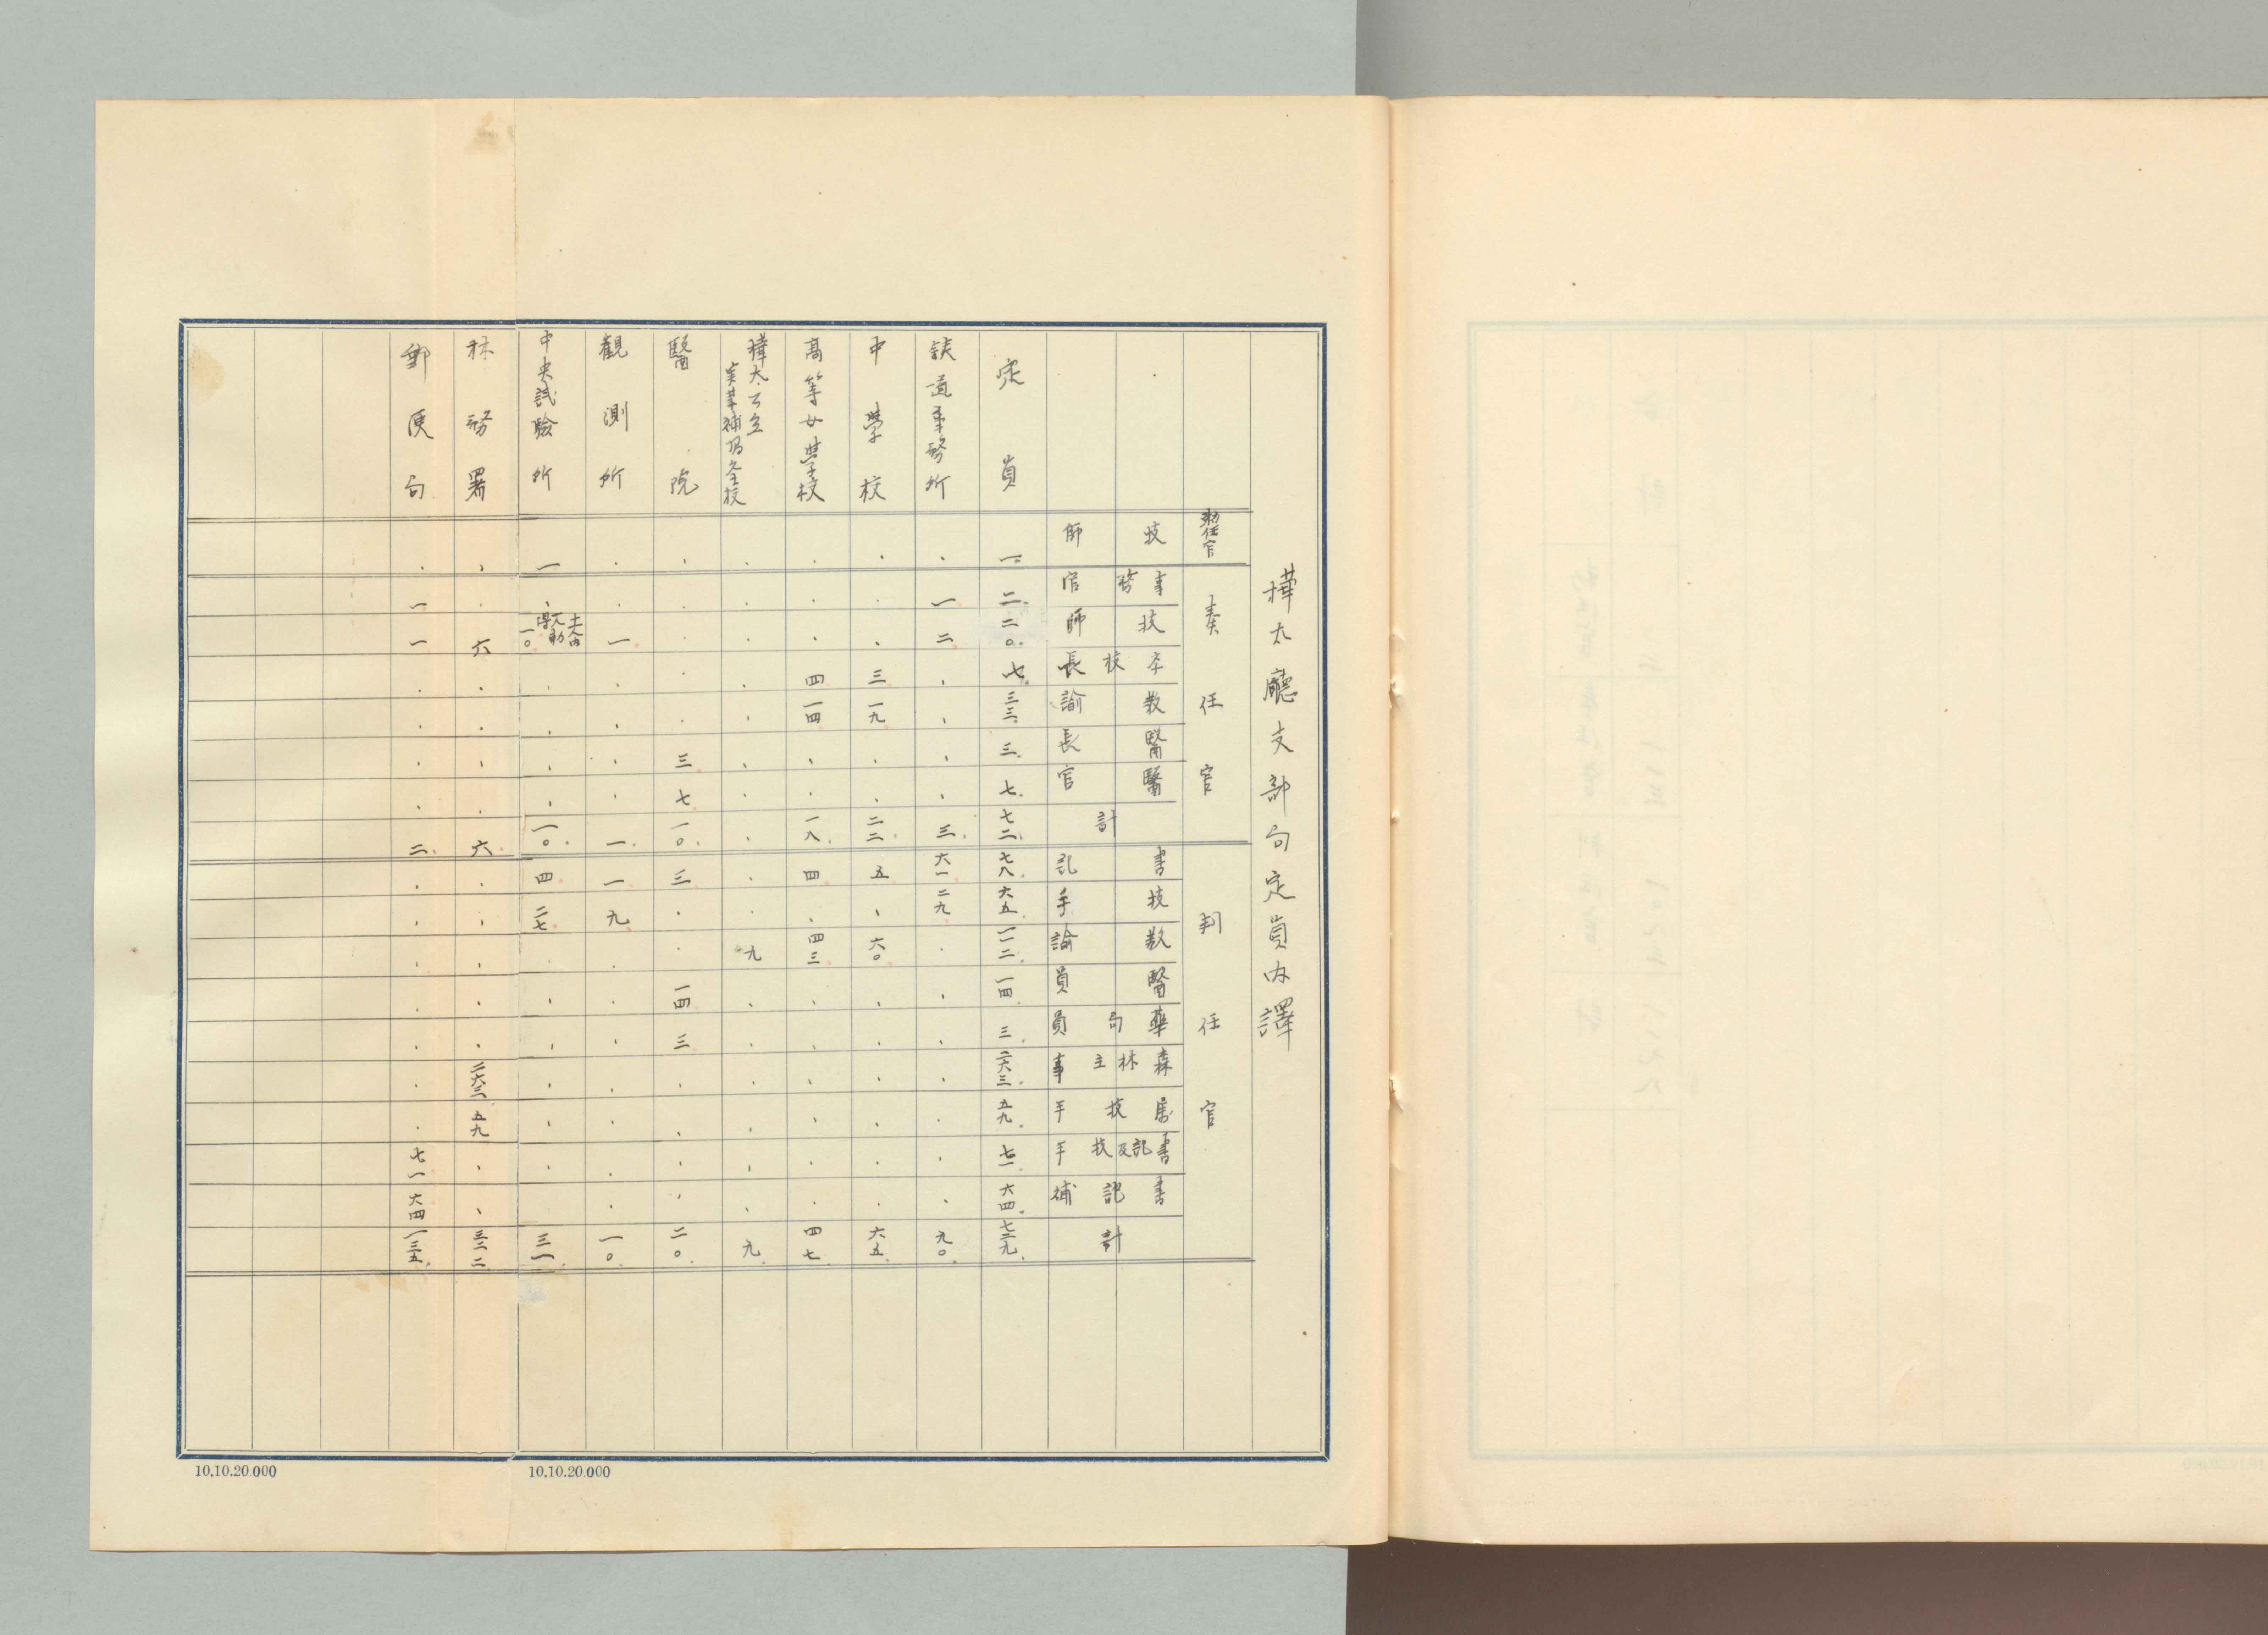 樺太廳支部局定員內譯
勅任官 奏任官 判任官
技師 事務官 技師 學校長 教諭 醫長 醫官 計 書記 技手 教諭 醫員 藥局員 森林主事 属技手 書記及技手 書記補 計
定員 一 二 二〇 七 三三 三 七 七二 七八 六五 一一二 一四 三 二六三 五九 七一 六四 七二九
鉄道事務所 一 二 三 六一 二九 九〇
中學校 三 一九 二二 五 六〇 六五
高等女學校 四 一四 一八 四 四三 四七
樺太公立
実業補習学校 九 九
醫院 三 七 一〇 三 一四 三 二〇
觀測所 一 一 一 九 一〇
中央試驗所 一 一〇 一〇 四 二七 三一
林務署 六 六 二六三 五九 三二二
郵便局 一 一 二 七一 六四 一三五
10.10.20.000
10.10.20.000